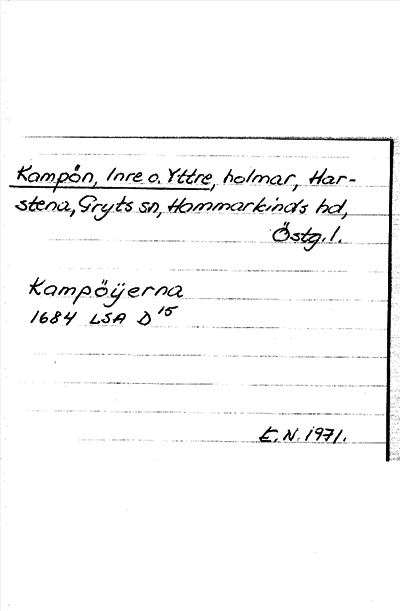 Kampön, Inre o. Yttre, holmar, Har-
stena, Gryts sn, Hammarkinds hd,
Östg. l.
Kampöÿerna
1684 LSA D 15
E. N. 1971.